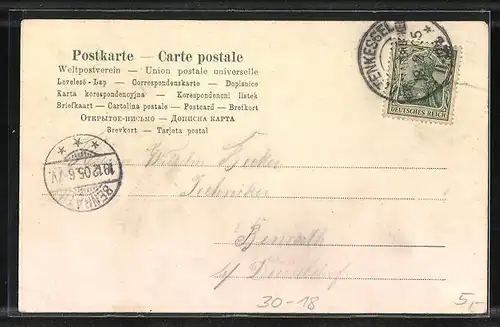 Postkarte — Carte postale
Weltpostverein — Union postale universelle
Levelező-Lap — Correspondenskarte — Dopisnice
Karta korespondencyjna — Korespondencni listek
Briefkaart — Cartolina postale — Postcard — Brefkort
ОТКРЫТОЕ-ПИСЬМО — ДОПИСНА КАРТА
Brevkort — Tarjeta postal
DEUTSCHES REICH
BENRATH
19.12.05.6-7V.
Wilhelm Becker
Techniker
Benrath
b/ Düsseldorf
30-18
5,-